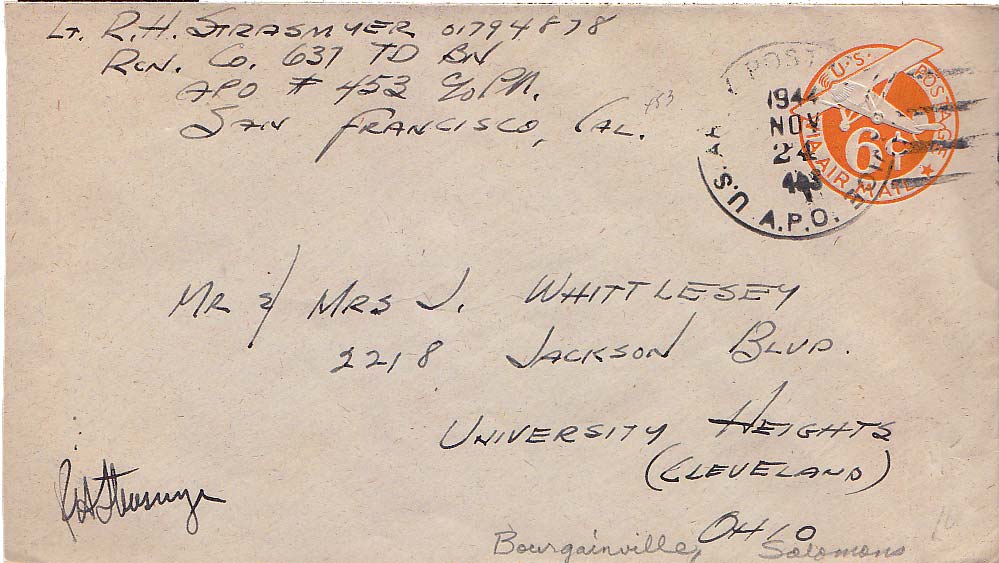 LT. R.H. STRASMYER 01794878
RCN. CO. 637 TD BN
APO # 453 c/o PM.
SAN FRANCISCO, CAL.
453
U.S. POSTAGE
6¢
VIA AIR MAIL
1944
NOV
24
U.S. A.P.O.
MR & MRS J. WHITTLESEY
2218 JACKSON BLVD.
UNIVERSITY HEIGHTS
(CLEVELAND)
OHIO
RH Strasmyer
Bourgainville, Solomons
10